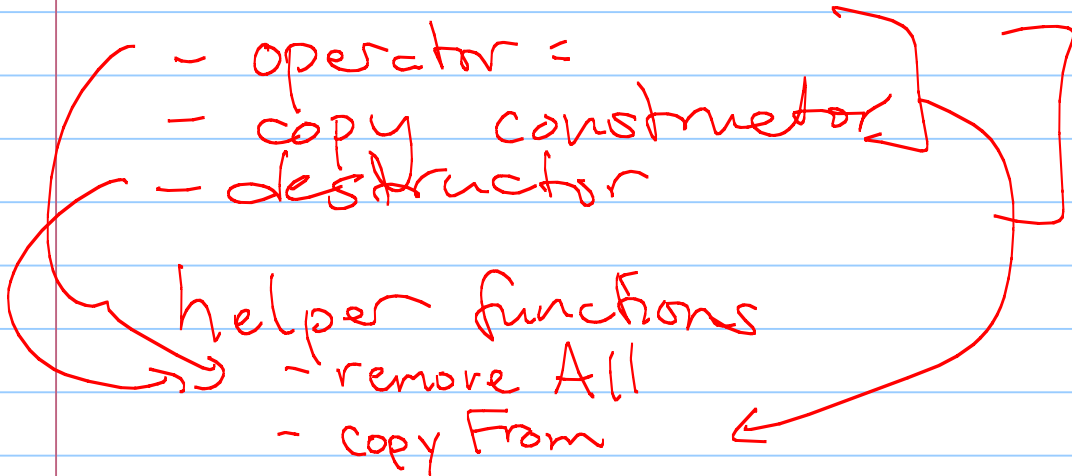 - operator =
- copy constructor
- destructor
helper functions
- remove All
- copy From